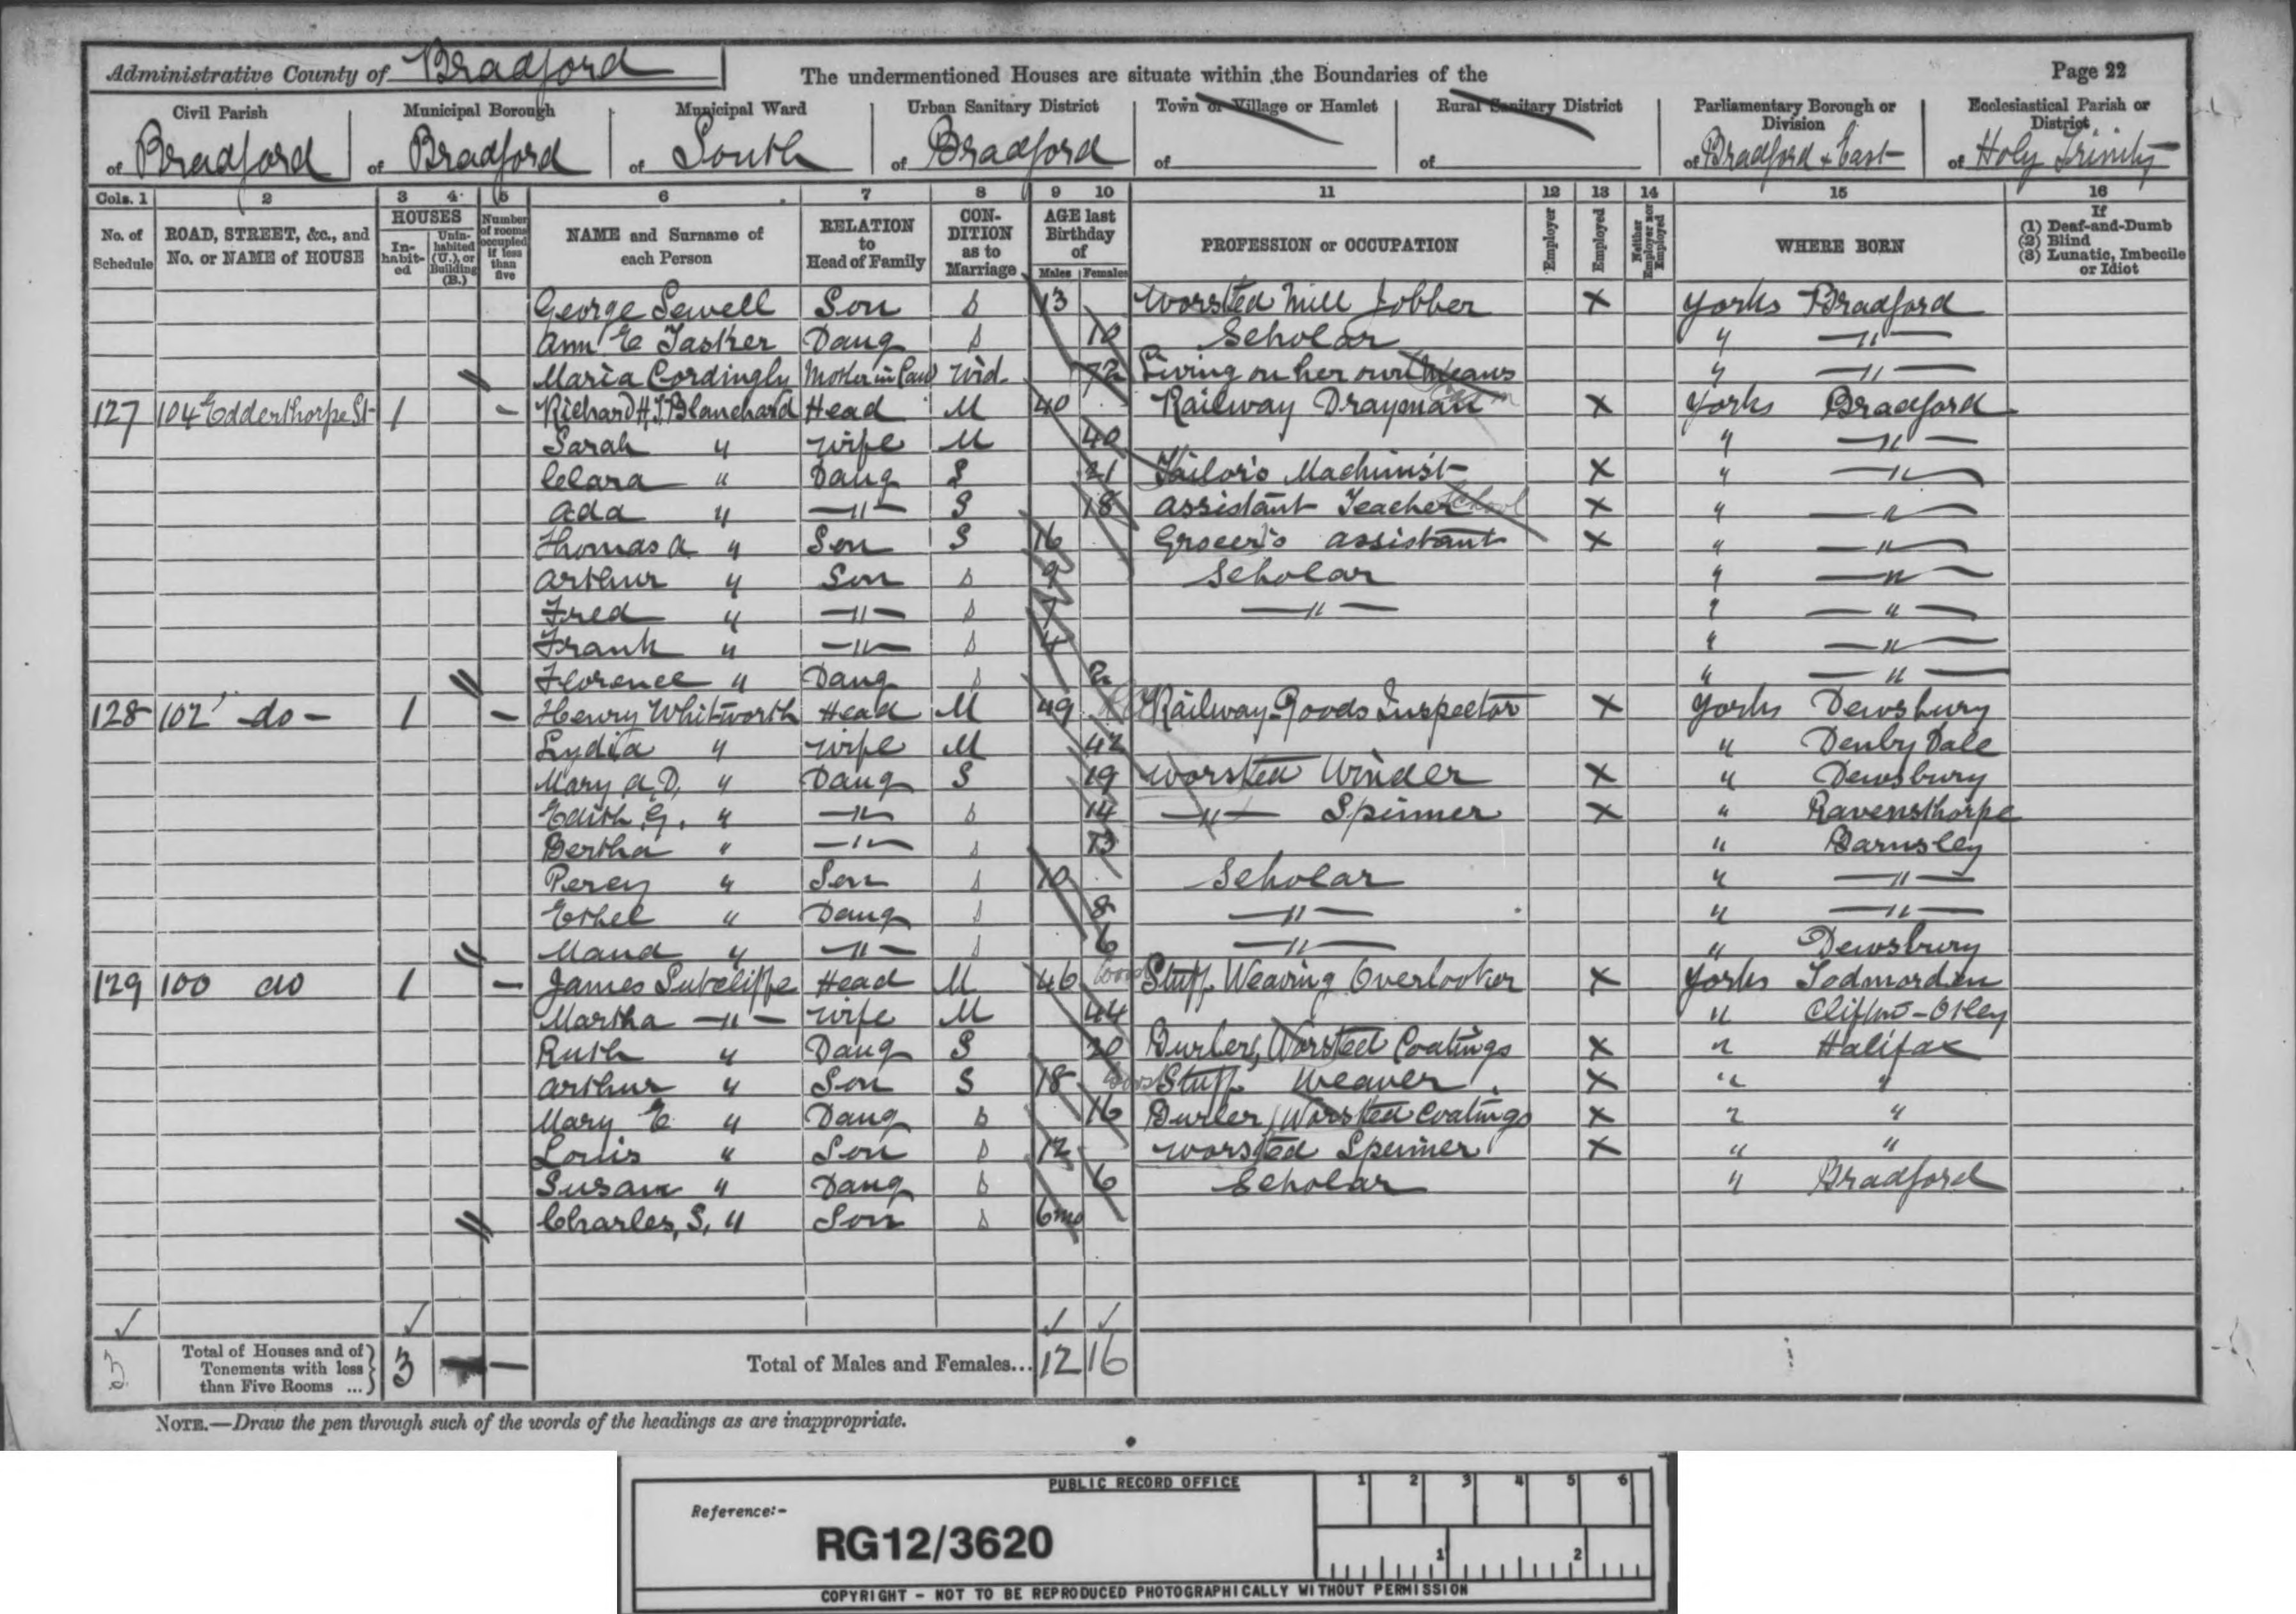 Administrative County of Bradford
The undermentioned Houses are situate within the Boundaries of the
Page 22
Civil Parish of Bradford
Municipal Borough of Bradford
Municipal Ward of South
Urban Sanitary District of Bradford
Town or Village or Hamlet of
Rural Sanitary District of
Parliamentary Borough or Division of Bradford East
Ecclesiastical Parish or District of Holy Trinity
Cols. 1 2 3 4 5 6 7 8 9 10 11 12 13 14 15 16
No. of Schedule
ROAD, STREET, &c., and No. or NAME of HOUSE
HOUSES
Inhabited
Uninhabited (U.), or Building (B.)
Number of rooms occupied if less than five
NAME and Surname of each Person
RELATION to Head of Family
CONDITION as to Marriage
AGE last Birthday of
Males Females
PROFESSION or OCCUPATION
Employer
Employed
Neither Employer nor Employed
WHERE BORN
If (1) Deaf-and-Dumb (2) Blind (3) Lunatic, Imbecile or Idiot
George Sewell Son S 13 Worsted Mill Jobber X Yorks Bradford
Ann E Tasker Daug S 10 Scholar " — " —
Maria Cordingly Mother in Law Wid. 72 Living on her own Means " — " —
127 104 Edderthorpe St 1 – Richard H. T. Blanchard Head M 40 Railway Drayman X Yorks Bradford
Sarah " Wife M 40 " — " —
Clara " Daug S 21 Tailor's Machinist X " — " —
Ada " — " — S 18 Assistant Teacher School X " — " —
Thomas A " Son S 16 Grocer's Assistant X " — " —
Arthur " Son S 9 Scholar " — " —
Fred " — " — S 7 — " — " — " —
Frank " — " — S 4 " — " —
Florence " Daug S 2 " — " —
128 102 do 1 – Henry Whitworth Head M 49 Railway Goods Inspector X Yorks Dewsbury
Lydia " Wife M 42 " Denby Dale
Mary A. D. " Daug S 19 Worsted Winder X " Dewsbury
Edith G. " — " — S 14 — " — Spinner X " Ravensthorpe
Bertha " — " — S 13 " Barnsley
Percy " Son S 10 Scholar " — " —
Ethel " Daug S 8 — " — " — " —
Maud " — " — S 6 — " — " Dewsbury
129 100 do 1 – James Sutcliffe Head M 46 Stuff Weaving Overlooker X Yorks Todmorden
Martha — " — Wife M 44 " Clifton - Otley
Ruth " Daug S 20 Burler, Worsted Coatings X " Halifax
Arthur " Son S 18 Stuff Weaver X " "
Mary E " Daug S 16 Burler, Worsted Coatings X " "
Louis " Son S 12 Worsted Spinner X " "
Susan " Daug S 6 Scholar " Bradford
Charles, S, " Son S 6mo
3
Total of Houses and of Tenements with less than Five Rooms ... 3 – –
Total of Males and Females... 12 16
NOTE.—Draw the pen through such of the words of the headings as are inappropriate.
PUBLIC RECORD OFFICE
1 2 3 4 5 6
Reference:-
RG12/3620
1 2
COPYRIGHT - NOT TO BE REPRODUCED PHOTOGRAPHICALLY WITHOUT PERMISSION